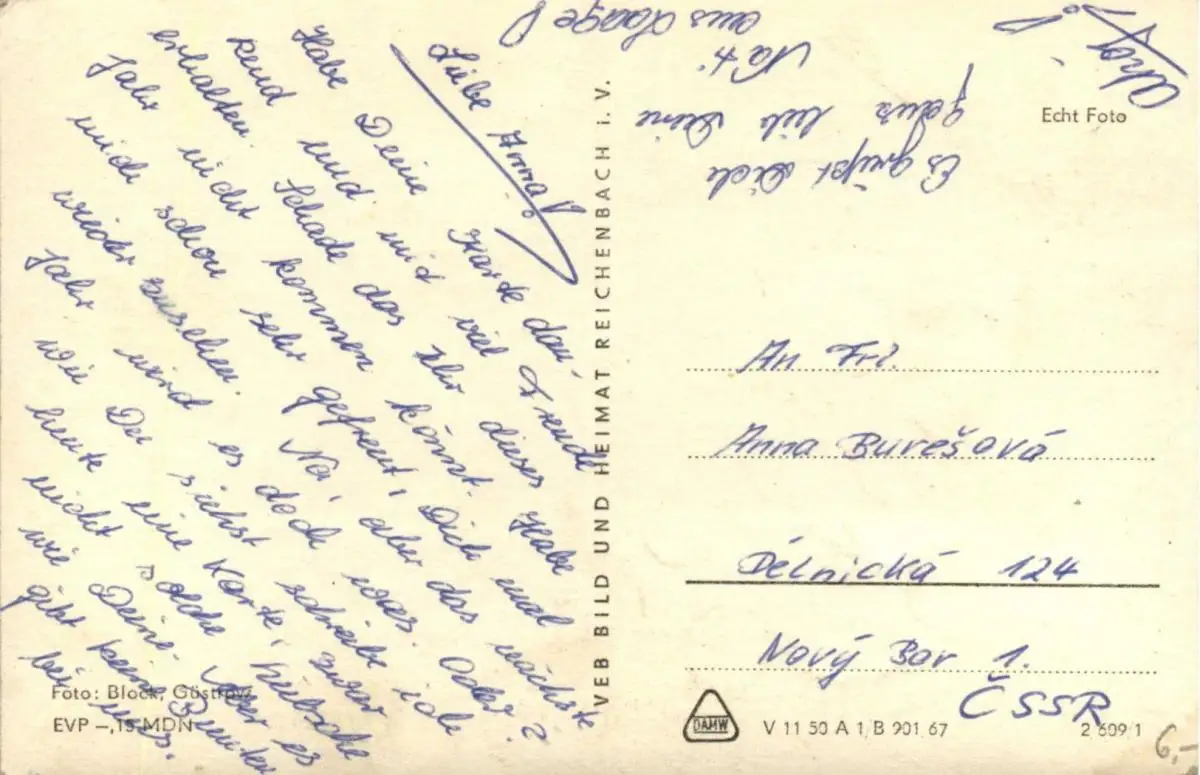 Liebe Anna!
Habe Deine Karte dan-
kend und mit viel Freude
erhalten. Schade das Ihr dieses
Jahr nicht kommen könnt. Habe
mich schon sehr gefreut, Dich mal
wieder zusehen. Na, aber das nächste
Jahr wird es doch was. Oder?
Wie Du siehst schreibe ich
heute eine Karte, zwar
nicht solche hübsche
wie Deine. Aber es
gibt keine Bunten
bei uns.
Es grüßt Dich
ganz lieb Deine
Nati
aus Laage!
Ahoj!
Foto: Block, Güstrow
EVP –,15 MDN
VEB BILD UND HEIMAT REICHENBACH i. V.
Echt Foto
An Frl.
Anna Burešová
Dělnická 124
Nový Bor 1.
ČSSR
DAMW
V 11 50 A 1/B 901 67
2 609/1
6,-